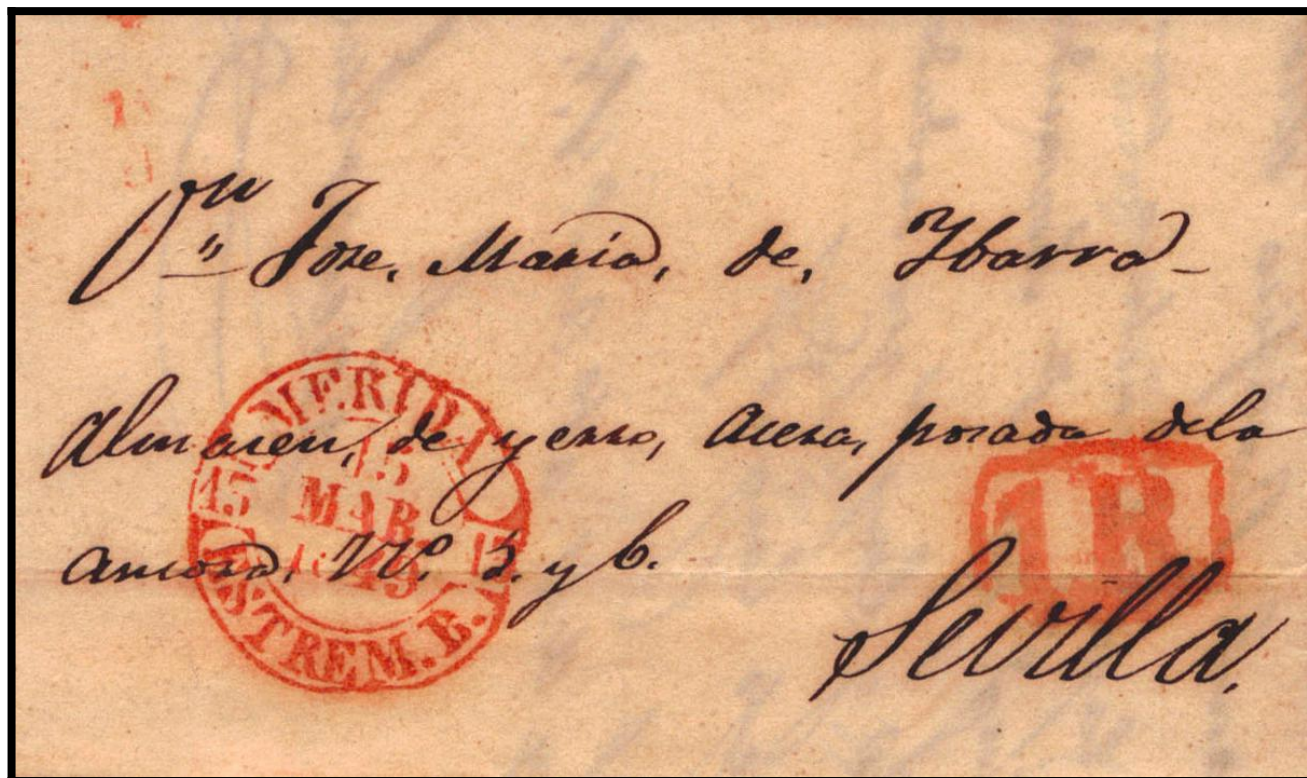 Dn Jose, Maria, de, Ybarra
Almacen, de yerro, acera, posada dela
Nº. 5. y 6.
Sevilla.
MERIDA
15
MAR
1849
15
ESTREM.B.
1R